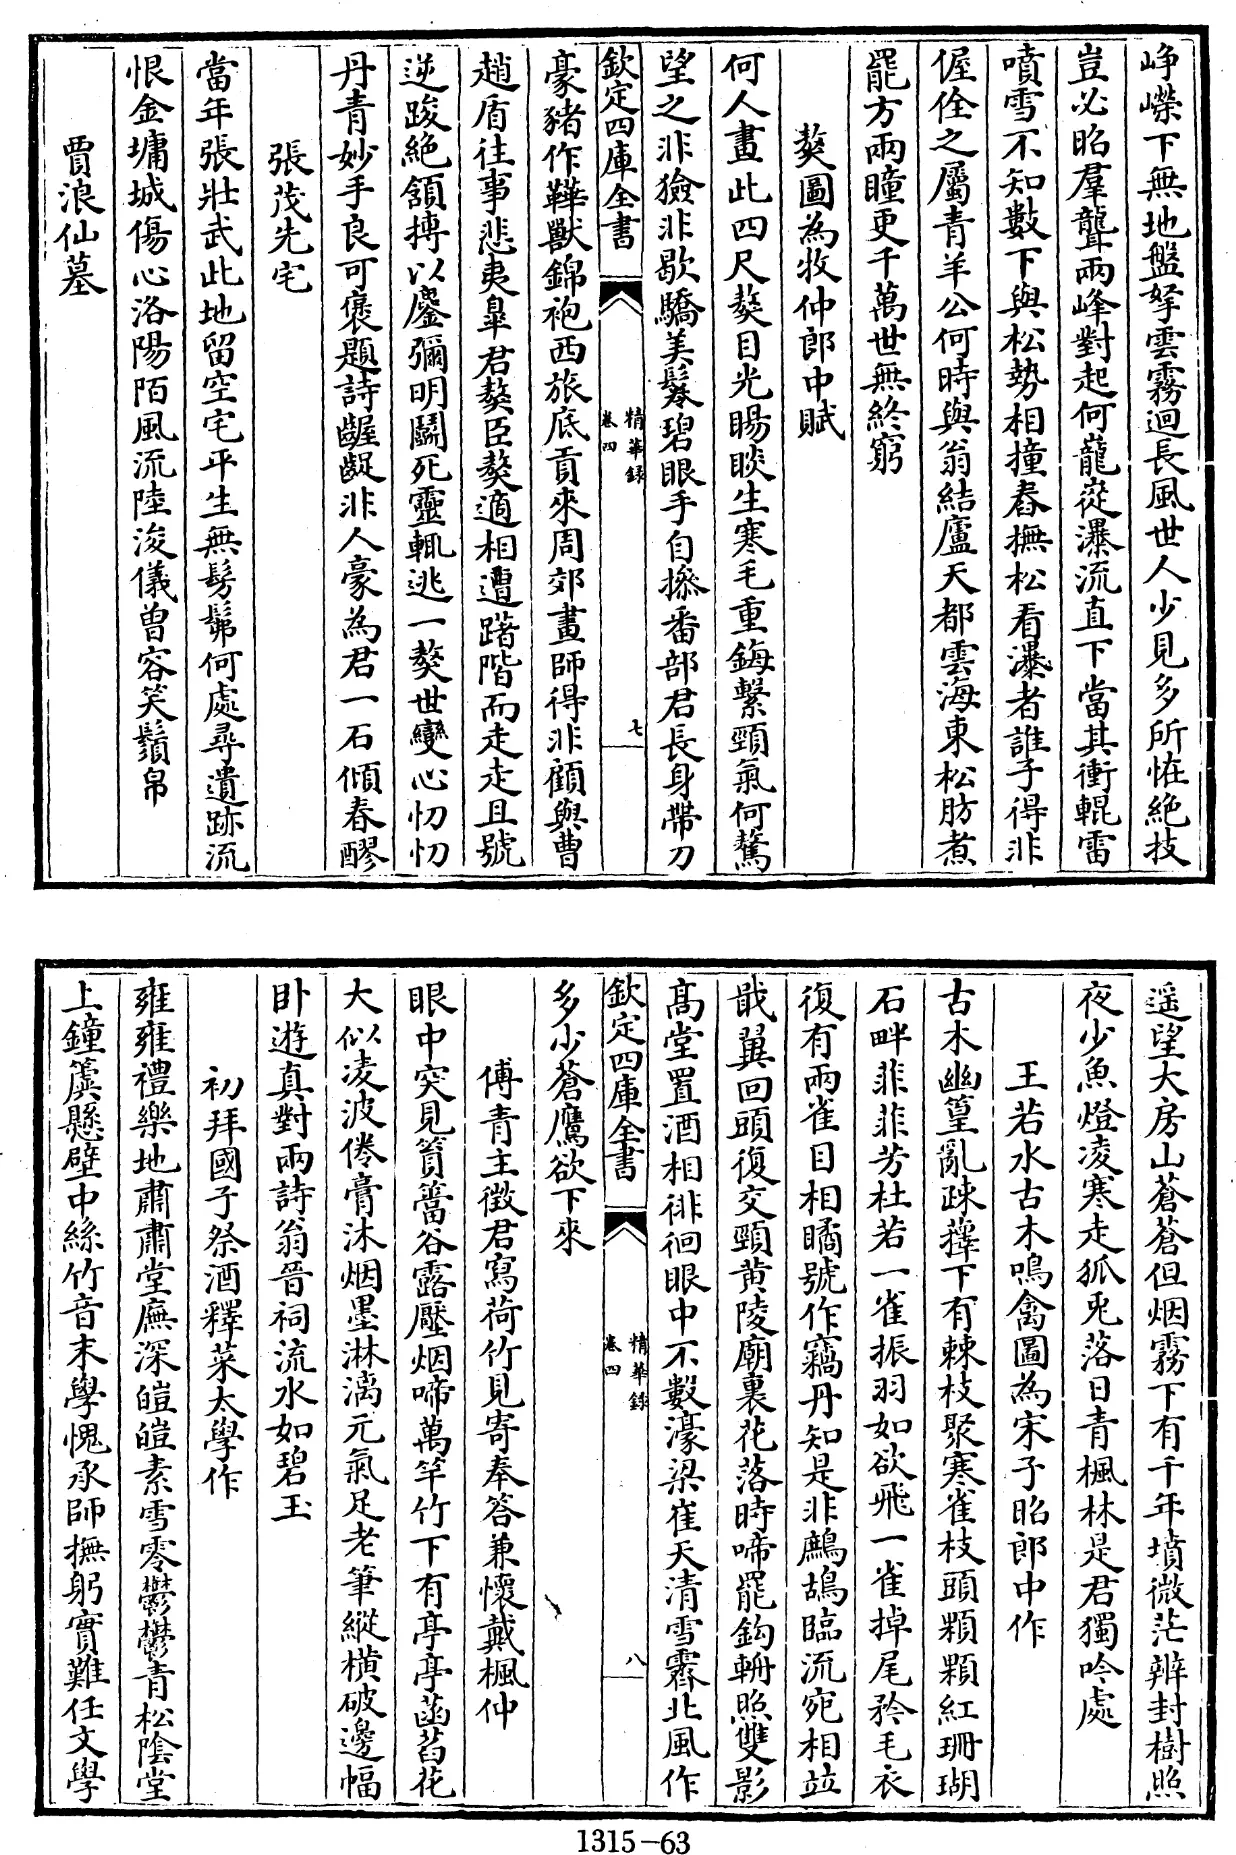 崢嶸下無地盤拏雲霧迴長風世人少見多所恠絶技
豈必昭羣聾兩峰對起何巃嵸瀑流直下當其衝輥雷
噴雪不知數下與松勢相撞舂撫松看瀑者誰子得非
偓佺之屬青羊公何時與翁結廬天都雲海東松肪煮
罷方兩瞳更千萬世無終窮
獒圖為牧仲郎中賦
何人畫此四尺獒目光睗睒生寒毛重鋂繫頸氣何驁
望之非獫非歇驕美鬈碧眼手自搽番部君長身帶刀
欽定四庫全書
精華録
卷四
七
豪豬作鞾獸錦袍西旅底貢來周郊畫師得非顧與曹
趙盾往事悲夷臯君獒臣獒適相遭躇階而走走且號
逆踆絶頷摶以鏖彌明鬭死靈輒逃一獒世變心忉忉
丹青妙手良可褒題詩齷齪非人豪為君一石傾春醪
張茂先宅
當年張壯武此地留空宅平生無髣髴何處尋遺跡流
恨金墉城傷心洛陽陌風流陸浚儀曽容笑鬚帛
賈浪仙墓
遥望大房山蒼蒼但烟霧下有千年墳微茫辨封樹照
夜少魚燈凌寒走狐兎落日青楓林是君獨吟處
王若水古木鳴禽圖為宋子昭郎中作
古木幽篁亂疎蘀下有棘枝聚寒雀枝頭顆顆紅珊瑚
石畔菲菲芳杜若一雀振羽如欲飛一雀掉尾矜毛衣
復有兩雀目相矚號作竊丹知是非鷓鴣臨流宛相竝
戢翼回頭復交頸黄陵廟裏花落時啼罷鉤輈照雙影
高堂置酒相徘徊眼中不數濠梁崔天清雪霽北風作
欽定四庫全書
精華録
卷四
八
多少蒼鷹欲下來
傅青主徴君寫荷竹見寄奉答兼懷戴楓仲
眼中突見篔簹谷露壓烟啼萬竿竹下有亭亭菡萏花
大似凌波倦膏沐烟墨淋漓元氣足老筆縱横破邊幅
卧遊真對兩詩翁晉祠流水如碧玉
初拜國子祭酒釋菜太學作
雍雍禮樂地肅肅堂廡深皚皚素雪零鬱鬱青松陰堂
上鐘簴懸壁中絲竹音末學愧承師撫躬實難任文學
1315-63